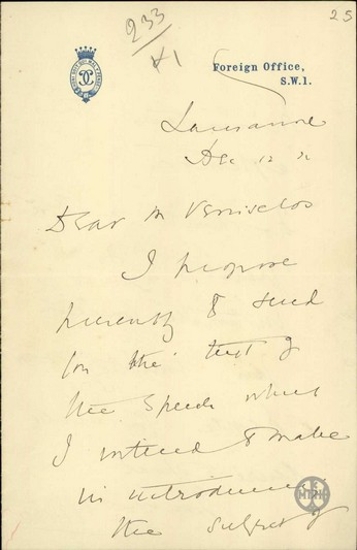 233
/1
25
Foreign Office,
S.W.1.
Lausanne
Dec 12 22
Dear M Veniselos
I propose
presently to send
you the text of
the speech which
I intend to make
in introducing
the subject of